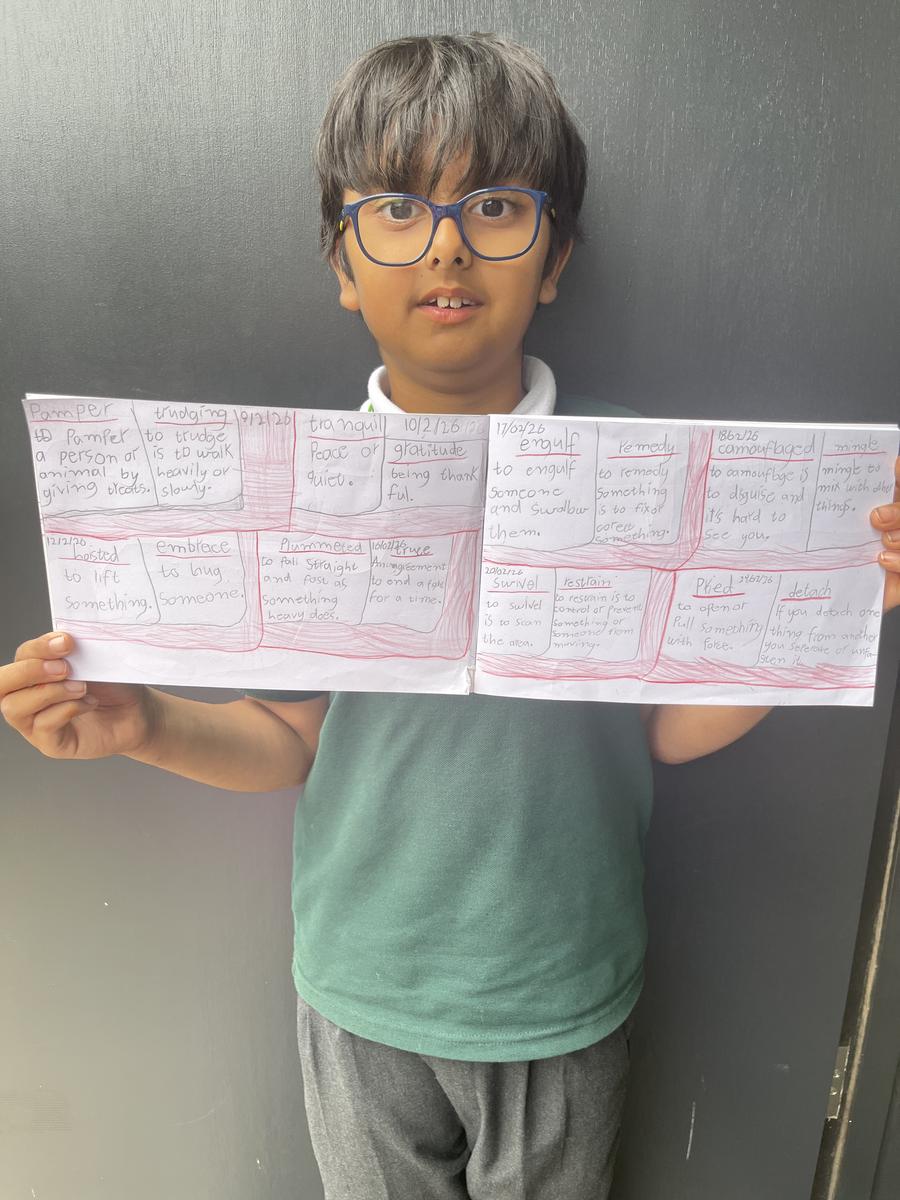 Pamper
to Pamper
a person or
animal by
giving treats.
trudging
to trudge
is to walk
heavily or
slowly.
9/2/26
tranquil
Peace or
quiet.
10/2/26
gratitude
being thank
ful.
12/2/26
hoisted
to lift
something.
embrace
to hug
someone.
Plummeted
to fall Straight
and fast as
something
heavy does.
truce
to end a
for a time.
17/02/26
engulf
to engulf
someone
and swallow
them.
remedy
to remedy
something
is to fix or
something.
camouflaged
to camouflage is
to disguise and
it's hard to
see you.
mingle
mingle to
mix with other
things.
20/02/26
Swivel
to swivel
is to scan
the area.
restrain
to restrain is to
control or prevent
something or
someone from
moving.
Pried
to open or
Pull something
with force.
detach
If you detach one
thing from another
you seperate or unfa
sten it.